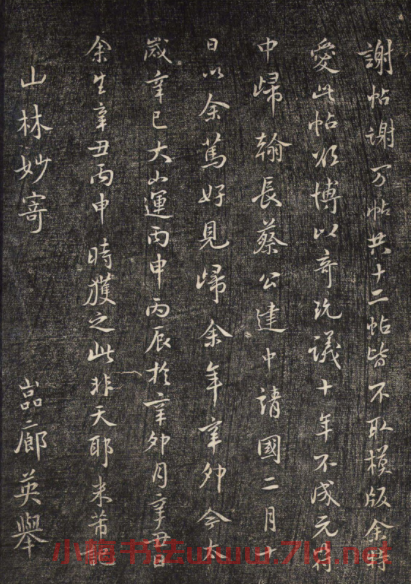 謝帖謝万帖共十二帖皆不取模版余特
愛此帖欲博以奇玩議十年不成元符
中歸翰長蔡公建中靖國二月十
日以余篤好見歸余年辛卯今太
歲辛巳大小運丙申丙辰於辛卯月辛丑日
余生辛丑丙申時獲之此非天耶米芾記
山林妙寄
嵓廊英舉
小福书法www.7ld.net